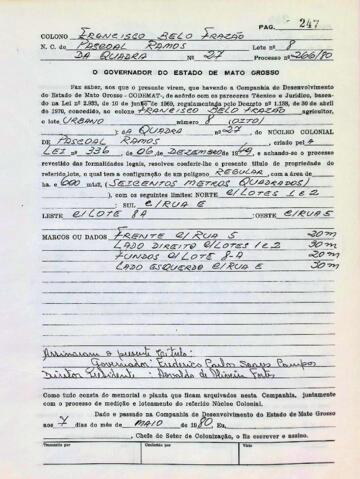 PAG. 247
COLONO FRANCISCO BELO FRAZÃO
N. C. de PASCOAL RAMOS Lote nº 8
DA QUADRA Nº 27 Processo nº 266/80
O GOVERNADOR DO ESTADO DE MATO GROSSO
Faz saber, aos que o presente virem, que havendo a Companhia de Desenvolvimento
do Estado de Mato Grosso - CODEMAT-, de acordo com os pareceres Técnico e Jurídico, basea-
do na Lei nº 2.933, de 10 de junho de 1969, regulamentada pelo Decreto nº 1.138, de 30 de abril
de 1970, concedido, ao colono FRANCISCO BELO FRAZÃO agricultor,
o lote URBANO número 8 (OITO)
); da QUADRA Nº 27, do NÚCLEO COLONIAL
DE PASCOAL RAMOS, criado pel a
LEI Nº 336 de 06 de DEZEMBRO de 1949, e achando-se o processo
revestido das formalidades legais, resolveu conferir-lhe o presente título de propriedade do
referido lote, o qual tem a configuração de um polígono REGULAR, com a área de
ha. 600 mts2, (SEISCENTOS METROS QUADRADOS)
), com os seguintes limites: NORTE C/LOTES 1 e 2
: SUL C/RUA E
LESTE C/LOTE 8A : OESTE C/RUA 5
MARCOS OU DADOS FRENTE C/RUA 5 20m
LADO DIREITO C/LOTES 1 e 2 30m
FUNDOS C/LOTE 8-A 20m
LADO ESQUERDO C/RUA E 30m
Assinaram o presente título:
Governador: Frederico Carlos Soares Campos
Diretor Presidente:
Como tudo consta do memorial e planta que ficam arquivados nesta Companhia, juntamente
com o processo de medição e loteamento do referido Núcleo Colonial.
Dado e passado na Companhia de Desenvolvimento do Estado de Mato Grosso
aos 7 dias do mês de MAIO de 1980, Eu,
, Chefe do Setor de Colonização, o fiz escrever e assino.
Transcrito por Conferido por Visto